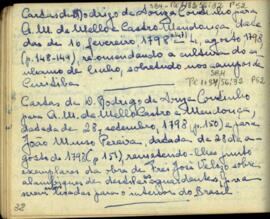 SBH-PC1/32/56/32 P52
Cartas de Rodrigo de Souza Coutinho para
A. M. de Mello e Castro Mendonça, data
das de 10, fevereiro, 1798 agosto 1798
(p. 148-149), recomendando a cultura do c
nhamo de linho, sobretudo nos campos de
Curitiba.
P62
Cartas de D. Rodrigo de Souza Coutinho
para A. M. de Mello e Castro e Mendonça,
datada de 28, setembro, 1798 (p. 150) e para
João Muniz Pereira, datada de 28 de a
gosto de 1798 (p. 151), remetendo-lhes junto
exemplares da obra de Frei José Veloso sobre
alambiques de destilar aguardentes para
serem tirados para o interior do Brasil
32